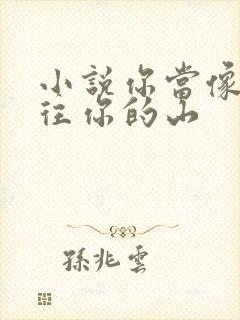 小說你當像
往你的山
孫兆雲